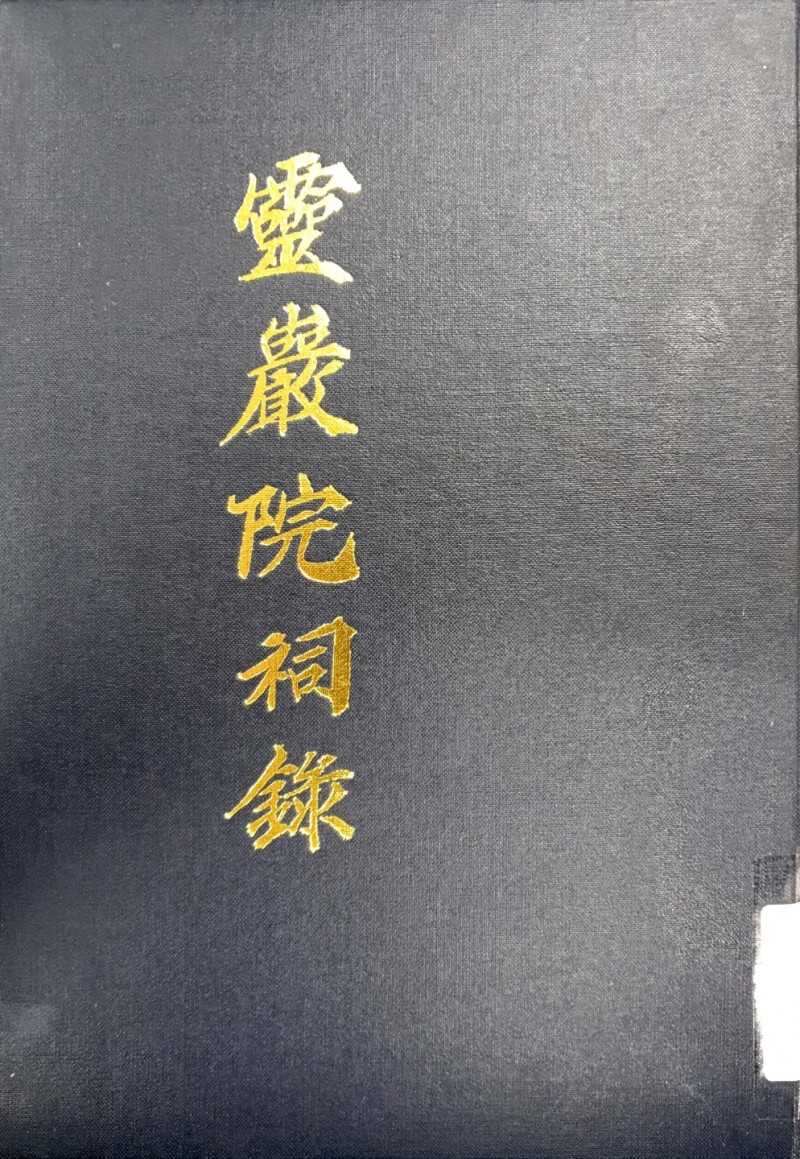 靈巖院祠錄